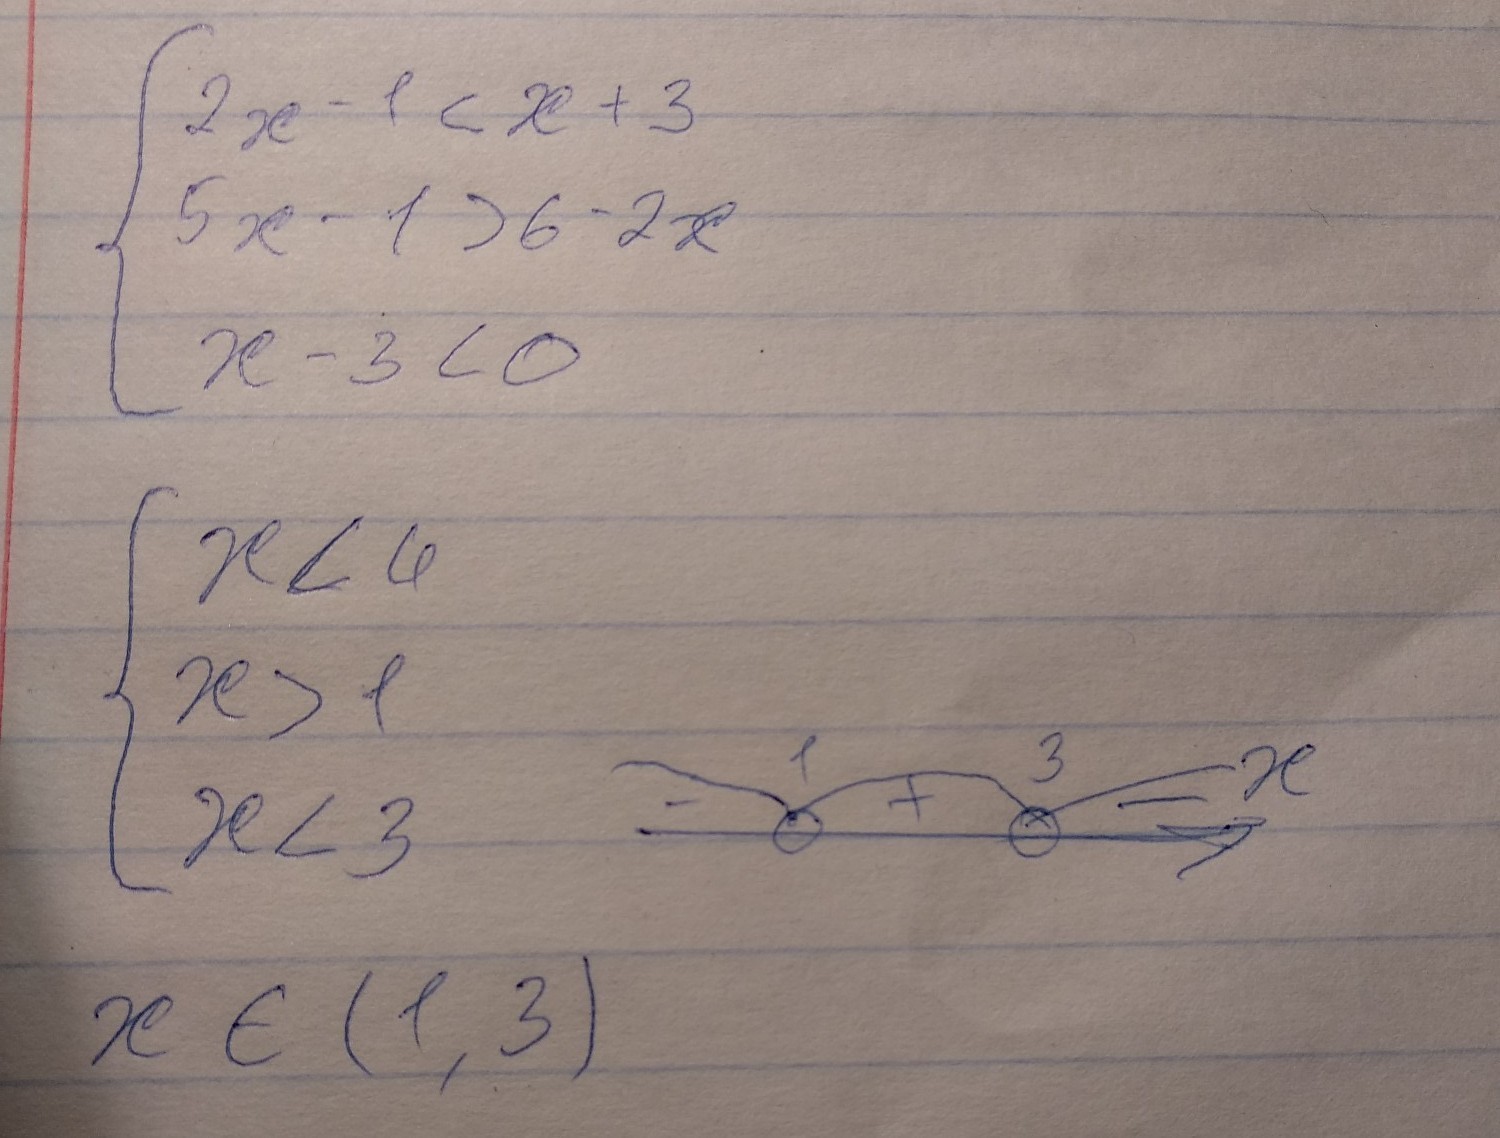 2x - 1 < x + 3
5x - 1 > 6 - 2x
x - 3 < 0
x < 4
x > 1
1 3 x
- + -
x < 3
x ∈ (1, 3)